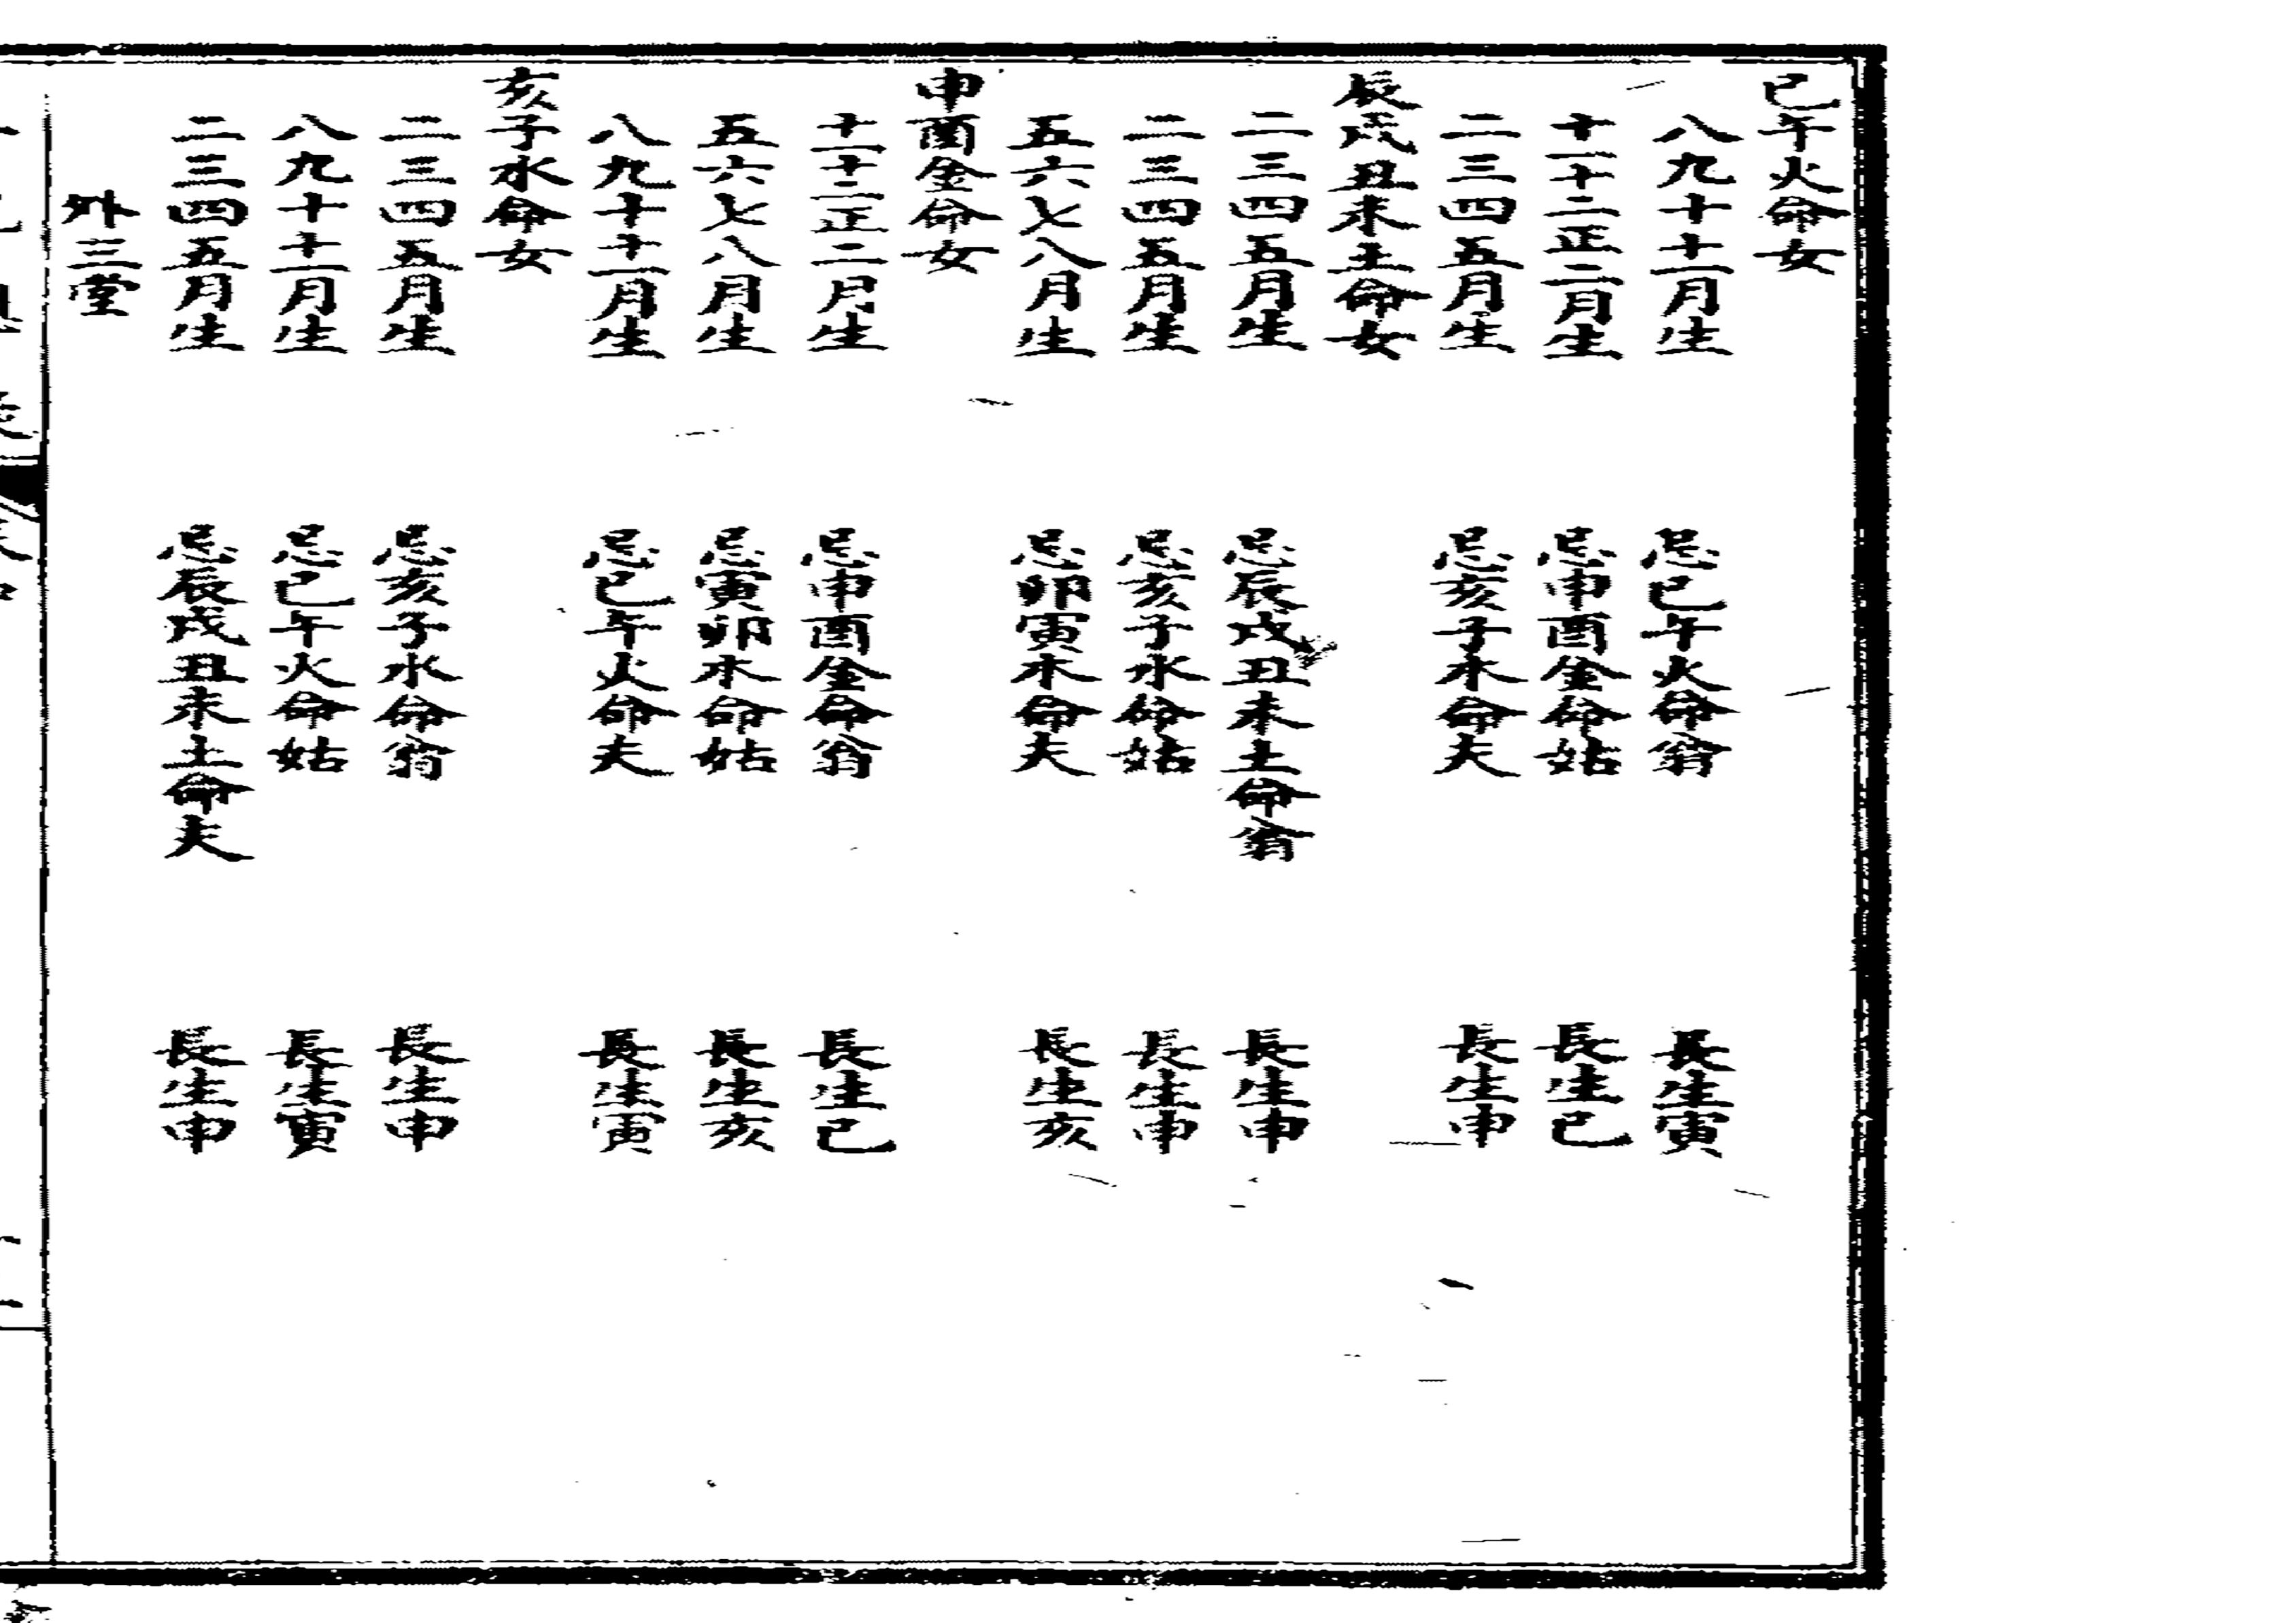 巳午火命女
八九十十一月生　忌巳午火命翁　長生寅
十一十二正二月生　忌申酉金命姑　長生巳
二三四五月生　忌亥子水命夫　長生申
辰戌丑未土命女
二三四五月生　忌辰戌丑未土命翁　長生申
二三四五月生　忌亥子水命姑　長生申
五六七八月生　忌卯寅木命夫　長生亥
申酉金命女
十一十二正二月生　忌申酉金命翁　長生巳
五六七八月生　忌寅卯木命姑　長生亥
八九十十一月生　忌巳午火命夫　長生寅
亥子水命女
二三四五月生　忌亥子水命翁　長生申
八九十十一月生　忌巳午火命姑　長生寅
二三四五月生　忌辰戌丑未土命夫　長生申
外三堂